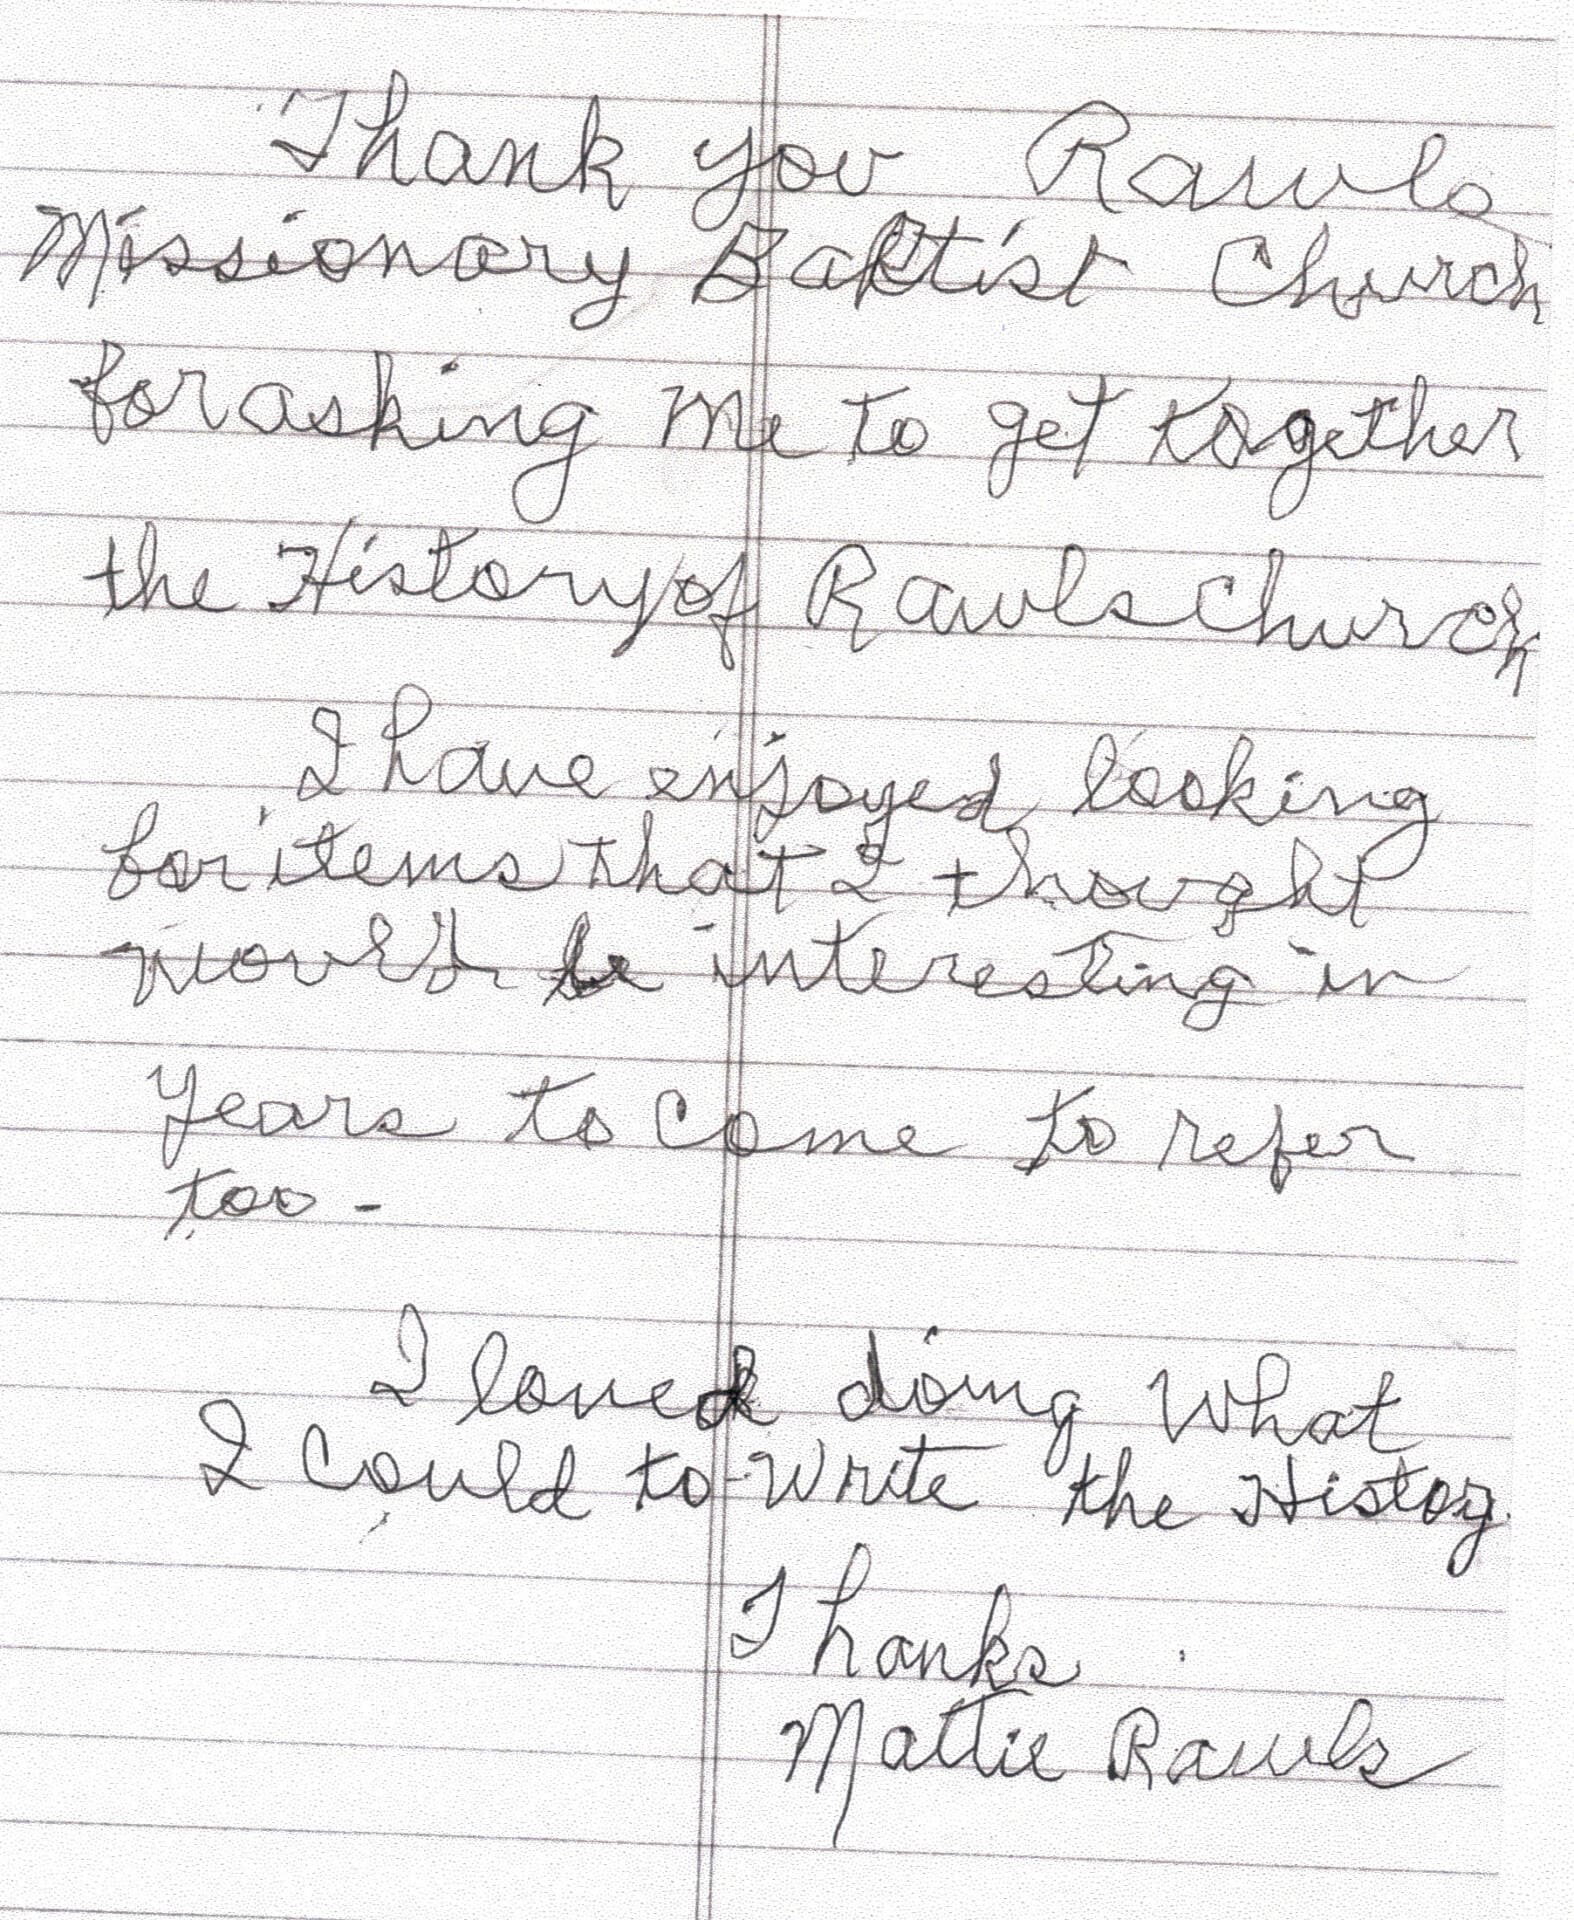 Thank you Rawls
Missionary Baptist Church
for asking me to get together
the History of Rawls Church
I have enjoyed looking
for items that I thought
would be interesting in
years to come to refer
too -
I loved doing what
I could to write the History.
Thanks
Mattie Rawls